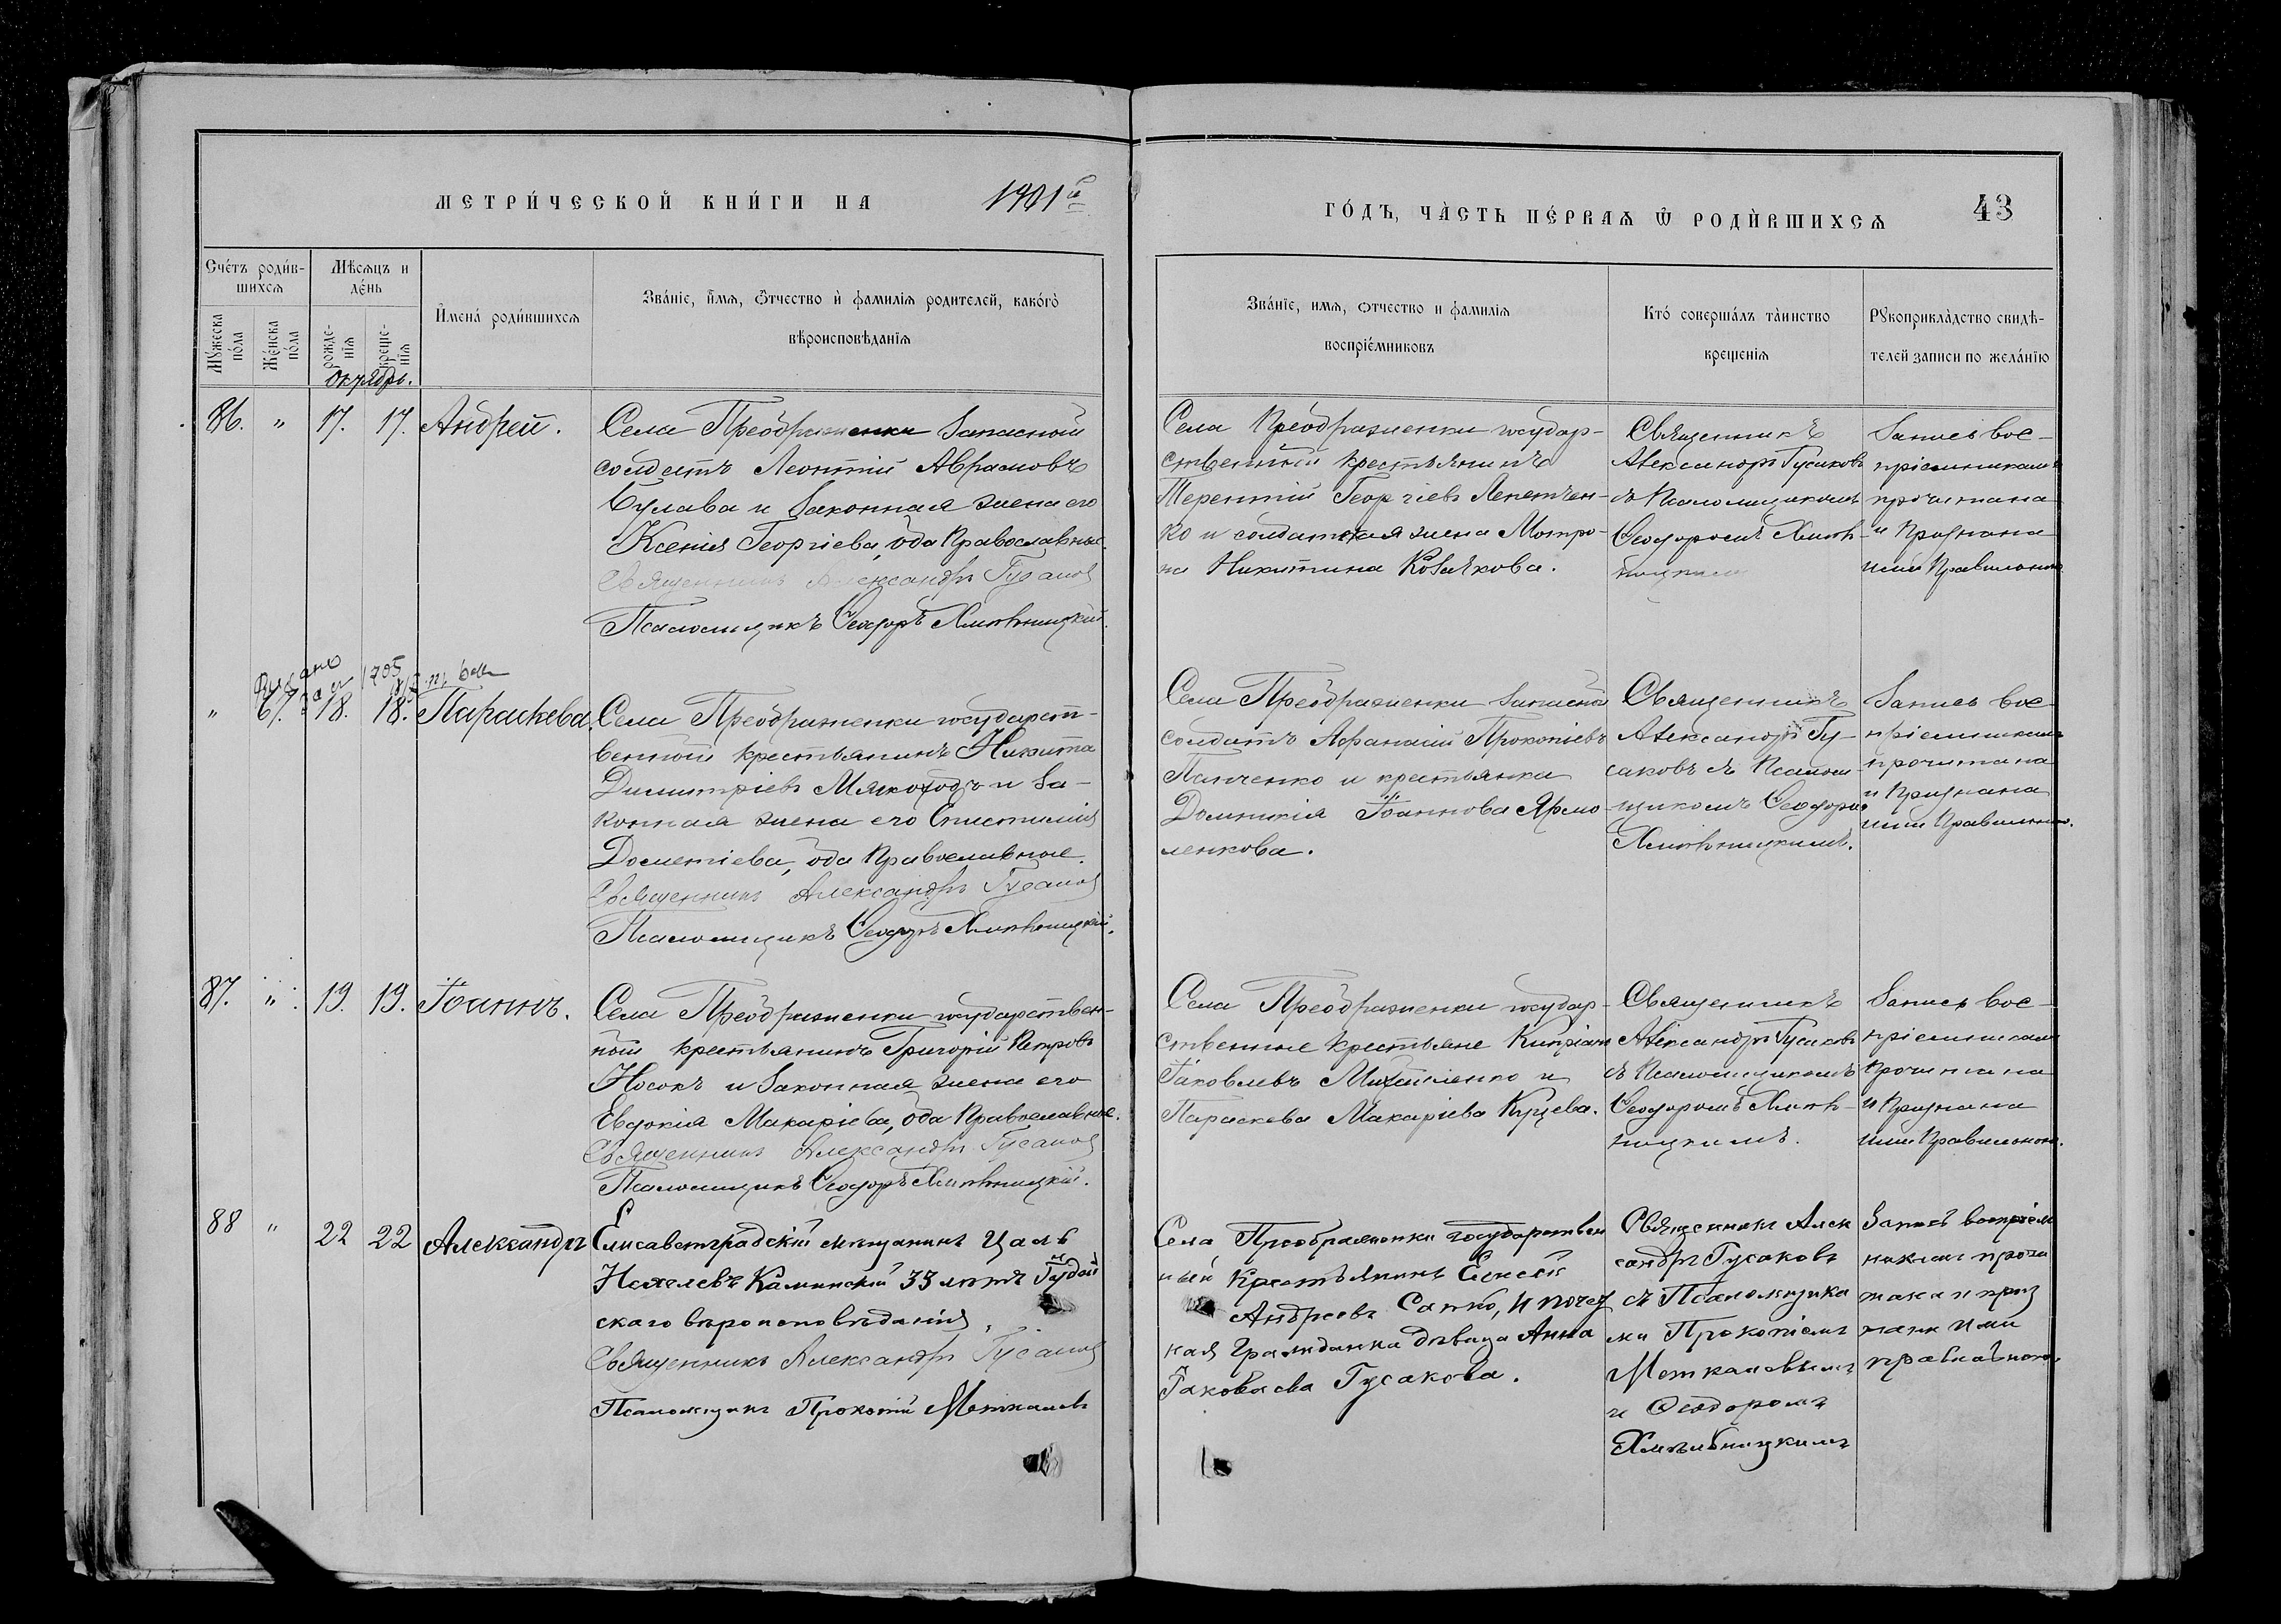 МЕТРИ́ЧЕСКОЙ КНИ́ГИ НА 1901й
ГО́ДЪ, ЧА̀СТЬ ПЕ́РВАѦ Ѿ РОДИ́ВШИХСѦ 43
Сче́тъ роди́в-
шихсѧ
Мѣ́сѧцъ и
де́нь
Мꙋ́жеска
по́ла
Же́нска
по́ла
рожде-
нїѧ
креще-
нїѧ
И҆мена́ роди́вшихсѧ
Зва́нїе, и҆́мѧ, ѻ҆́тчество и҆ фамилїѧ родителей, како́гѡ
вѣроисповѣ́данїѧ
Зва́нїе, имѧ, ѻтчество и фамилїѧ
воспрїе́мниковъ
Кто́ соверша́лъ та́инство
крещенїѧ
Рꙋкоприкла́дство свидѣ́-
телей записи по жела́нїю
Октябрь.
86. " 17. 17. Андрей.
Села Преображенки запасной
солдатъ Леонтій Аврамовъ
Булава и законная жена его
Ксенія Георгіева, оба православные.
Священникъ Александръ Гусаков
Псаломщикъ Ѳеодоръ Хмѣльницкій.
Села Преображенки государ-
ственный крестьянинъ
Терентій Георгіевъ Лепетчен-
ко и солдатская жена Матро-
на Никитина Козакова.
Священникъ
Александръ Гусаковъ
съ Псаломщикомъ
Ѳеодоромъ Хмѣль-
ницкимъ
Запись вос-
пріемниками
прочитана
и признана
ими правильною
1705
" 67. 18. 18. Параскева.
Села Преображенки государст-
венный крестьянинъ Никита
Димитріевъ Мякоходъ и за-
конная жена его Епистимія
Дометіева, оба православные.
Священникъ Александръ Гусаков
Псаломщикъ Ѳеодоръ Хмѣльницкій.
Села Преображенки запасной
солдатъ Афанасій Прокопіевъ
Панченко и крестьянка
Домникія Іоаннова Ярмо-
ленкова.
Священникъ
Александръ Гу-
саковъ съ Псалом-
щикомъ Ѳеодоромъ
Хмѣльницкимъ.
Запись вос-
пріемниками
прочитана
и признана
ими правильною.
87. " 19. 19. Іоаннъ.
Села Преображенки государствен-
ный крестьянинъ Григорій Петровъ
Носокъ и законная жена его
Евдокія Макаріева, оба православные.
Священникъ Александръ Гусаков
Псаломщикъ Ѳеодоръ Хмѣльницкій.
Села Преображенки государ-
ственные крестьяне Кипріанъ
Іаковлевъ Михайленко и
Параскева Макаріева Куцева.
Священникъ
Александръ Гусаковъ
съ Псаломщикомъ
Ѳеодоромъ Хмѣль-
ницкимъ.
Запись вос-
пріемниками
прочитана
и признана
ими правильною.
88 " 22 22 Александръ
Елисаветградскій мѣщанинъ Цаль
Каминскій 33 лѣтъ Іудей
скаго вѣроисповѣданія.
Священникъ Александръ Гусаков
Псаломщикъ Прокопій Меткалевъ
Села Преображенки государствен
ный крестьянинъ
Андреевъ Сапко, и почет
ная гражданка дѣвица Анна
Іаковлева Гусакова.
Священникъ Алек
сандръ Гусаковъ
съ Псаломщика
ми Прокопіемъ
Меткалевымъ
и Ѳеодоромъ
Хмѣльницкимъ
Запись воспріем
никами прочи
тана и приз
нана ими
правильною.